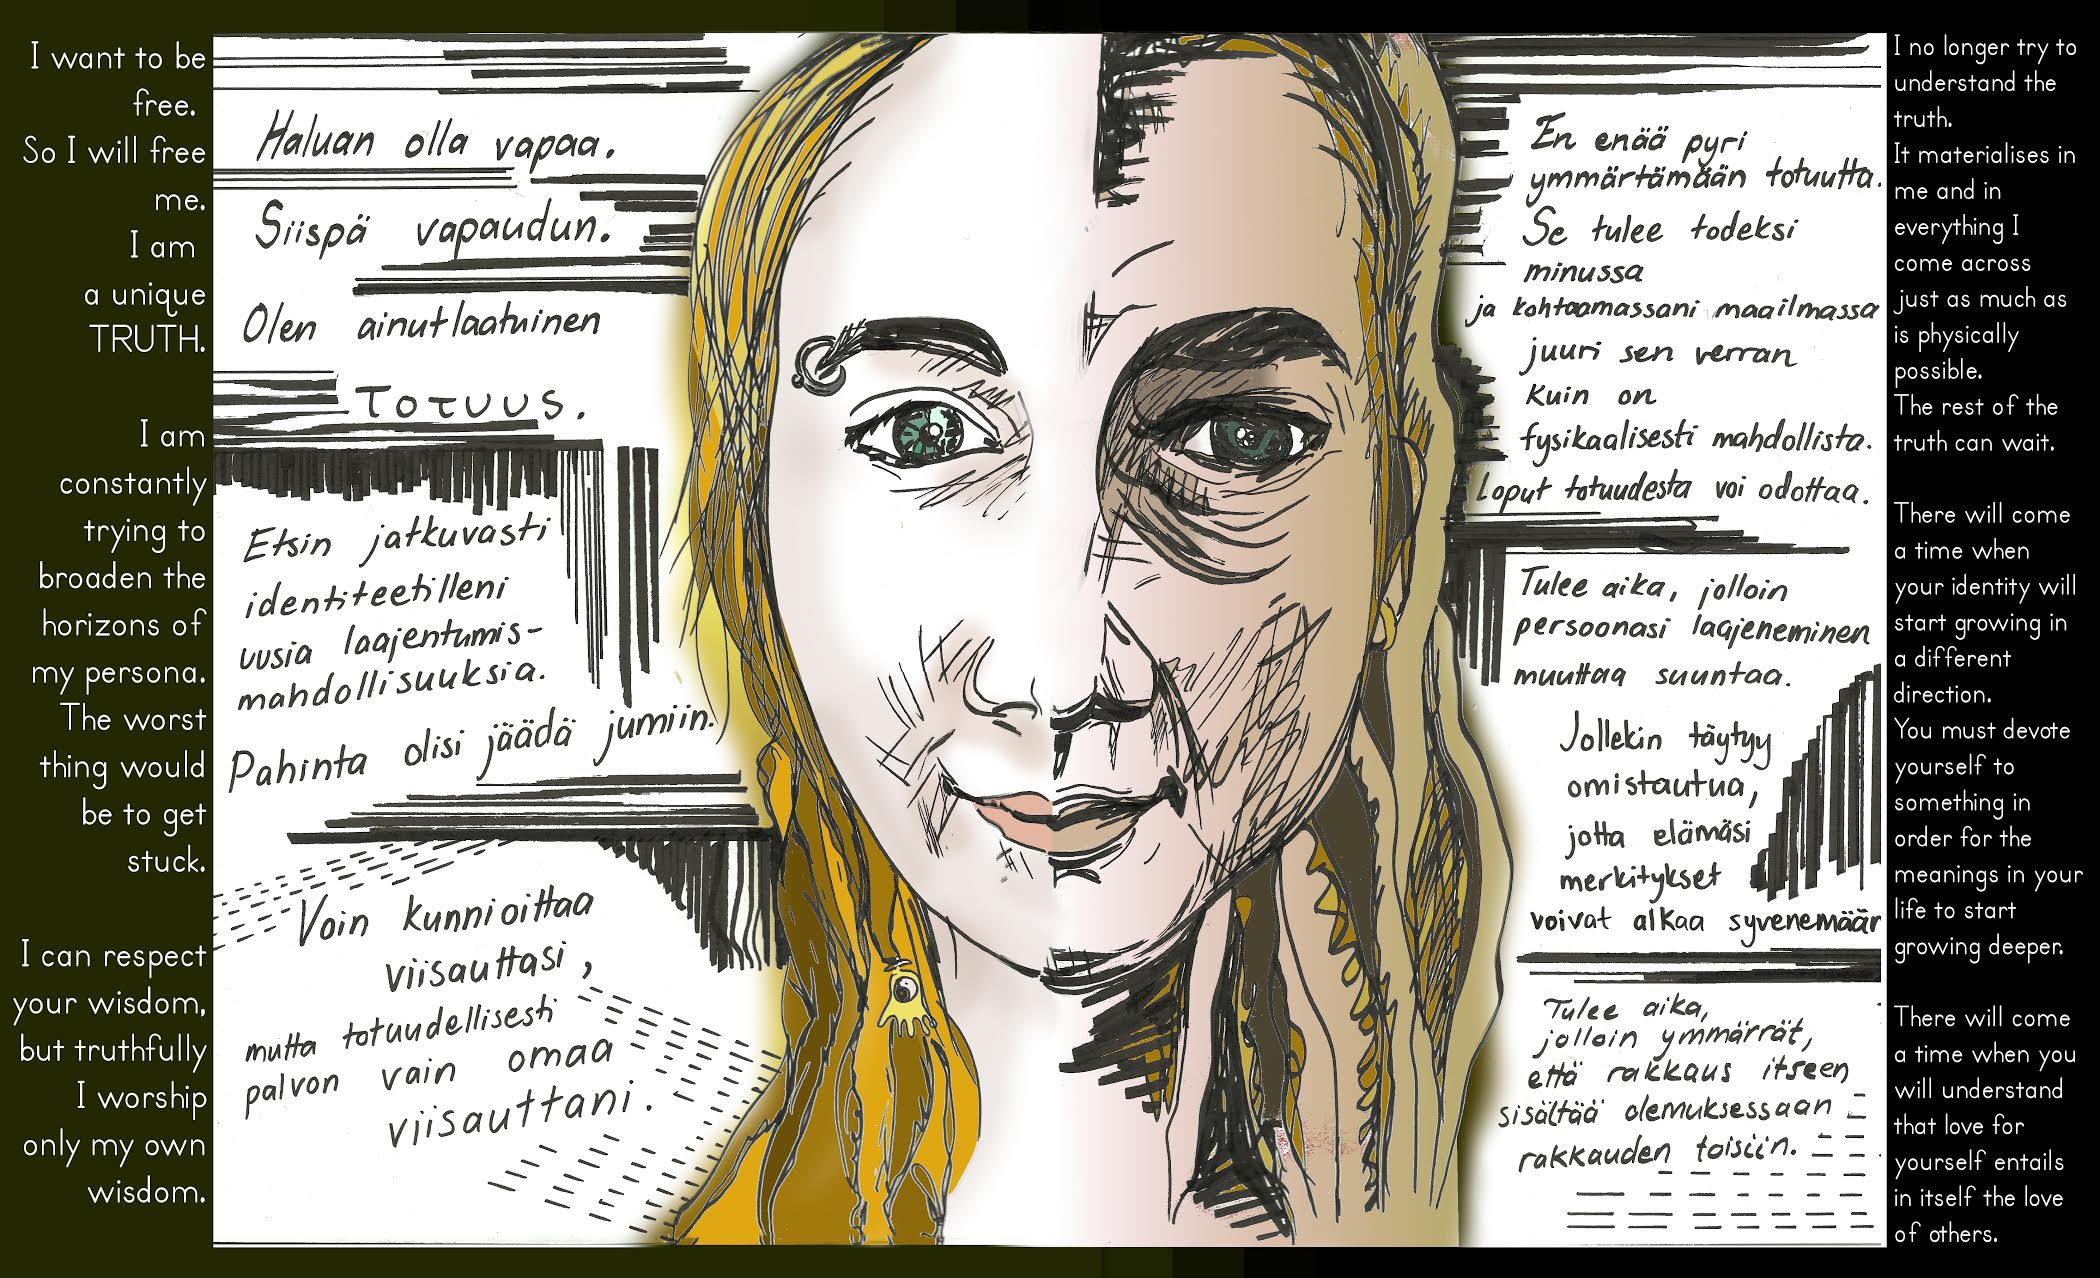 I want to be
free.
So I will free
me.
I am
a unique
TRUTH.
I am
constantly
trying to
broaden the
horizons of
my persona.
The worst
thing would
be to get
stuck.
I can respect
your wisdom,
but truthfully
I worship
only my own
wisdom.
Haluan olla vapaa.
Siispä vapaudun.
Olen ainutlaatuinen
TOTUUS.
Etsin jatkuvasti
identiteetilleni
uusia laajentumis-
mahdollisuuksia.
Pahinta olisi jäädä jumiin.
Voin kunnioittaa
viisauttasi,
mutta totuudellisesti
palvon vain omaa
viisauttani.
En enää pyri
ymmärtämään totuutta.
Se tulee todeksi
minussa
ja kohtaamassani maailmassa
juuri sen verran
kuin on
fysikaalisesti mahdollista.
Loput totuudesta voi odottaa.
Tulee aika, jolloin
persoonasi laajeneminen
muuttaa suuntaa.
Jollekin täytyy
omistautua,
jotta elämäsi
merkitykset
voivat alkaa syvenemään
Tulee aika,
jolloin ymmärrät,
että rakkaus itseen
sisältää olemuksessaan
rakkauden toisiin.
I no longer try to
understand the
truth.
It materialises in
me and in
everything I
come across
just as much as
is physically
possible.
The rest of the
truth can wait.
There will come
a time when
your identity will
start growing in
a different
direction.
You must devote
yourself to
something in
order for the
meanings in your
life to start
growing deeper.
There will come
a time when you
will understand
that love for
yourself entails
in itself the love
of others.